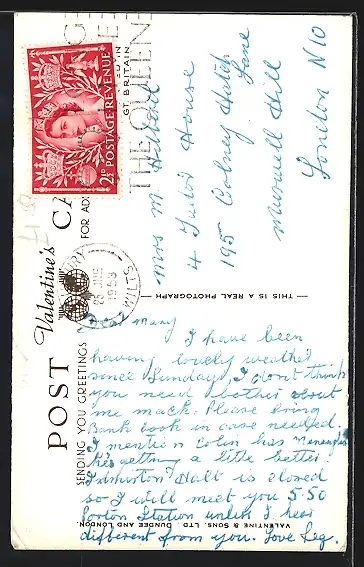 POST CARD
Valentine's
SENDING YOU GREETINGS
FOR AD
THIS IS A REAL PHOTOGRAPH
VALENTINE & SONS. LTD. DUNDEE AND LONDON.
POSTAGE REVENUE
2½D
THE QUEEN
GT BRITAIN
JNE
1953
WILTS
Mrs M.
4 Tudor House
195 Colney Hatch
Lane
Muswell Hill
London N10
Dear Mary
I have been
having lovely weather
since Sunday, I don't think
you need bother about
me mack. Please bring
Bank book in case needed,
I mentie n Colin has
He's getting a little better
Halt is closed
so I will meet you 5.50
Porton Station unless I hear
different from you. Love Reg.